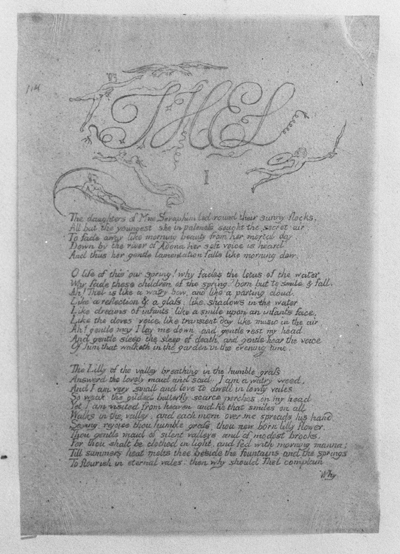 THEL
I
The daughters of Mne Seraphim led round their sunny flocks,
All but the youngest. she in paleness sought the secret air.
To fade away like morning beauty from her mortal day:
Down by the river of Adona her soft voice is heard:
And thus her gentle lamentation falls like morning dew.
O life of this our spring! why fades the lotus of the water,
Why fade these children of the spring? born but to smile & fall.
Ah! Thel is like a watry bow, and like a parting cloud.
Like a reflection in a glass. like shadows in the water.
Like dreams of infants. like a smile upon an infants face,
Like the doves voice, like transient day, like music in the air
Ah! gentle may I lay me down, and gentle rest my head.
And gentle sleep the sleep of death. and gentle hear the voice
Of him that walketh in the garden in the evening time.
The Lilly of the valley breathing in the humble grass
Answered the lovely maid and said; I am a watry weed,
And I am very small and love to dwell in lowly vales;
So weak the gilded butterfly scarce perches on my head
Yet I am visited from heaven and he that smiles on all
Walks in the valley. and each morn over me spreads his hand
Saying, rejoice thou humble grass, thou new born lilly flower,
Thou gentle maid of silent valleys and of modest brooks:
For thou shalt be clothed in light, and fed with morning manna:
Till summers heat melts thee beside the fountains and the springs
To flourish in eternal vales: then why should Thel complain
Why